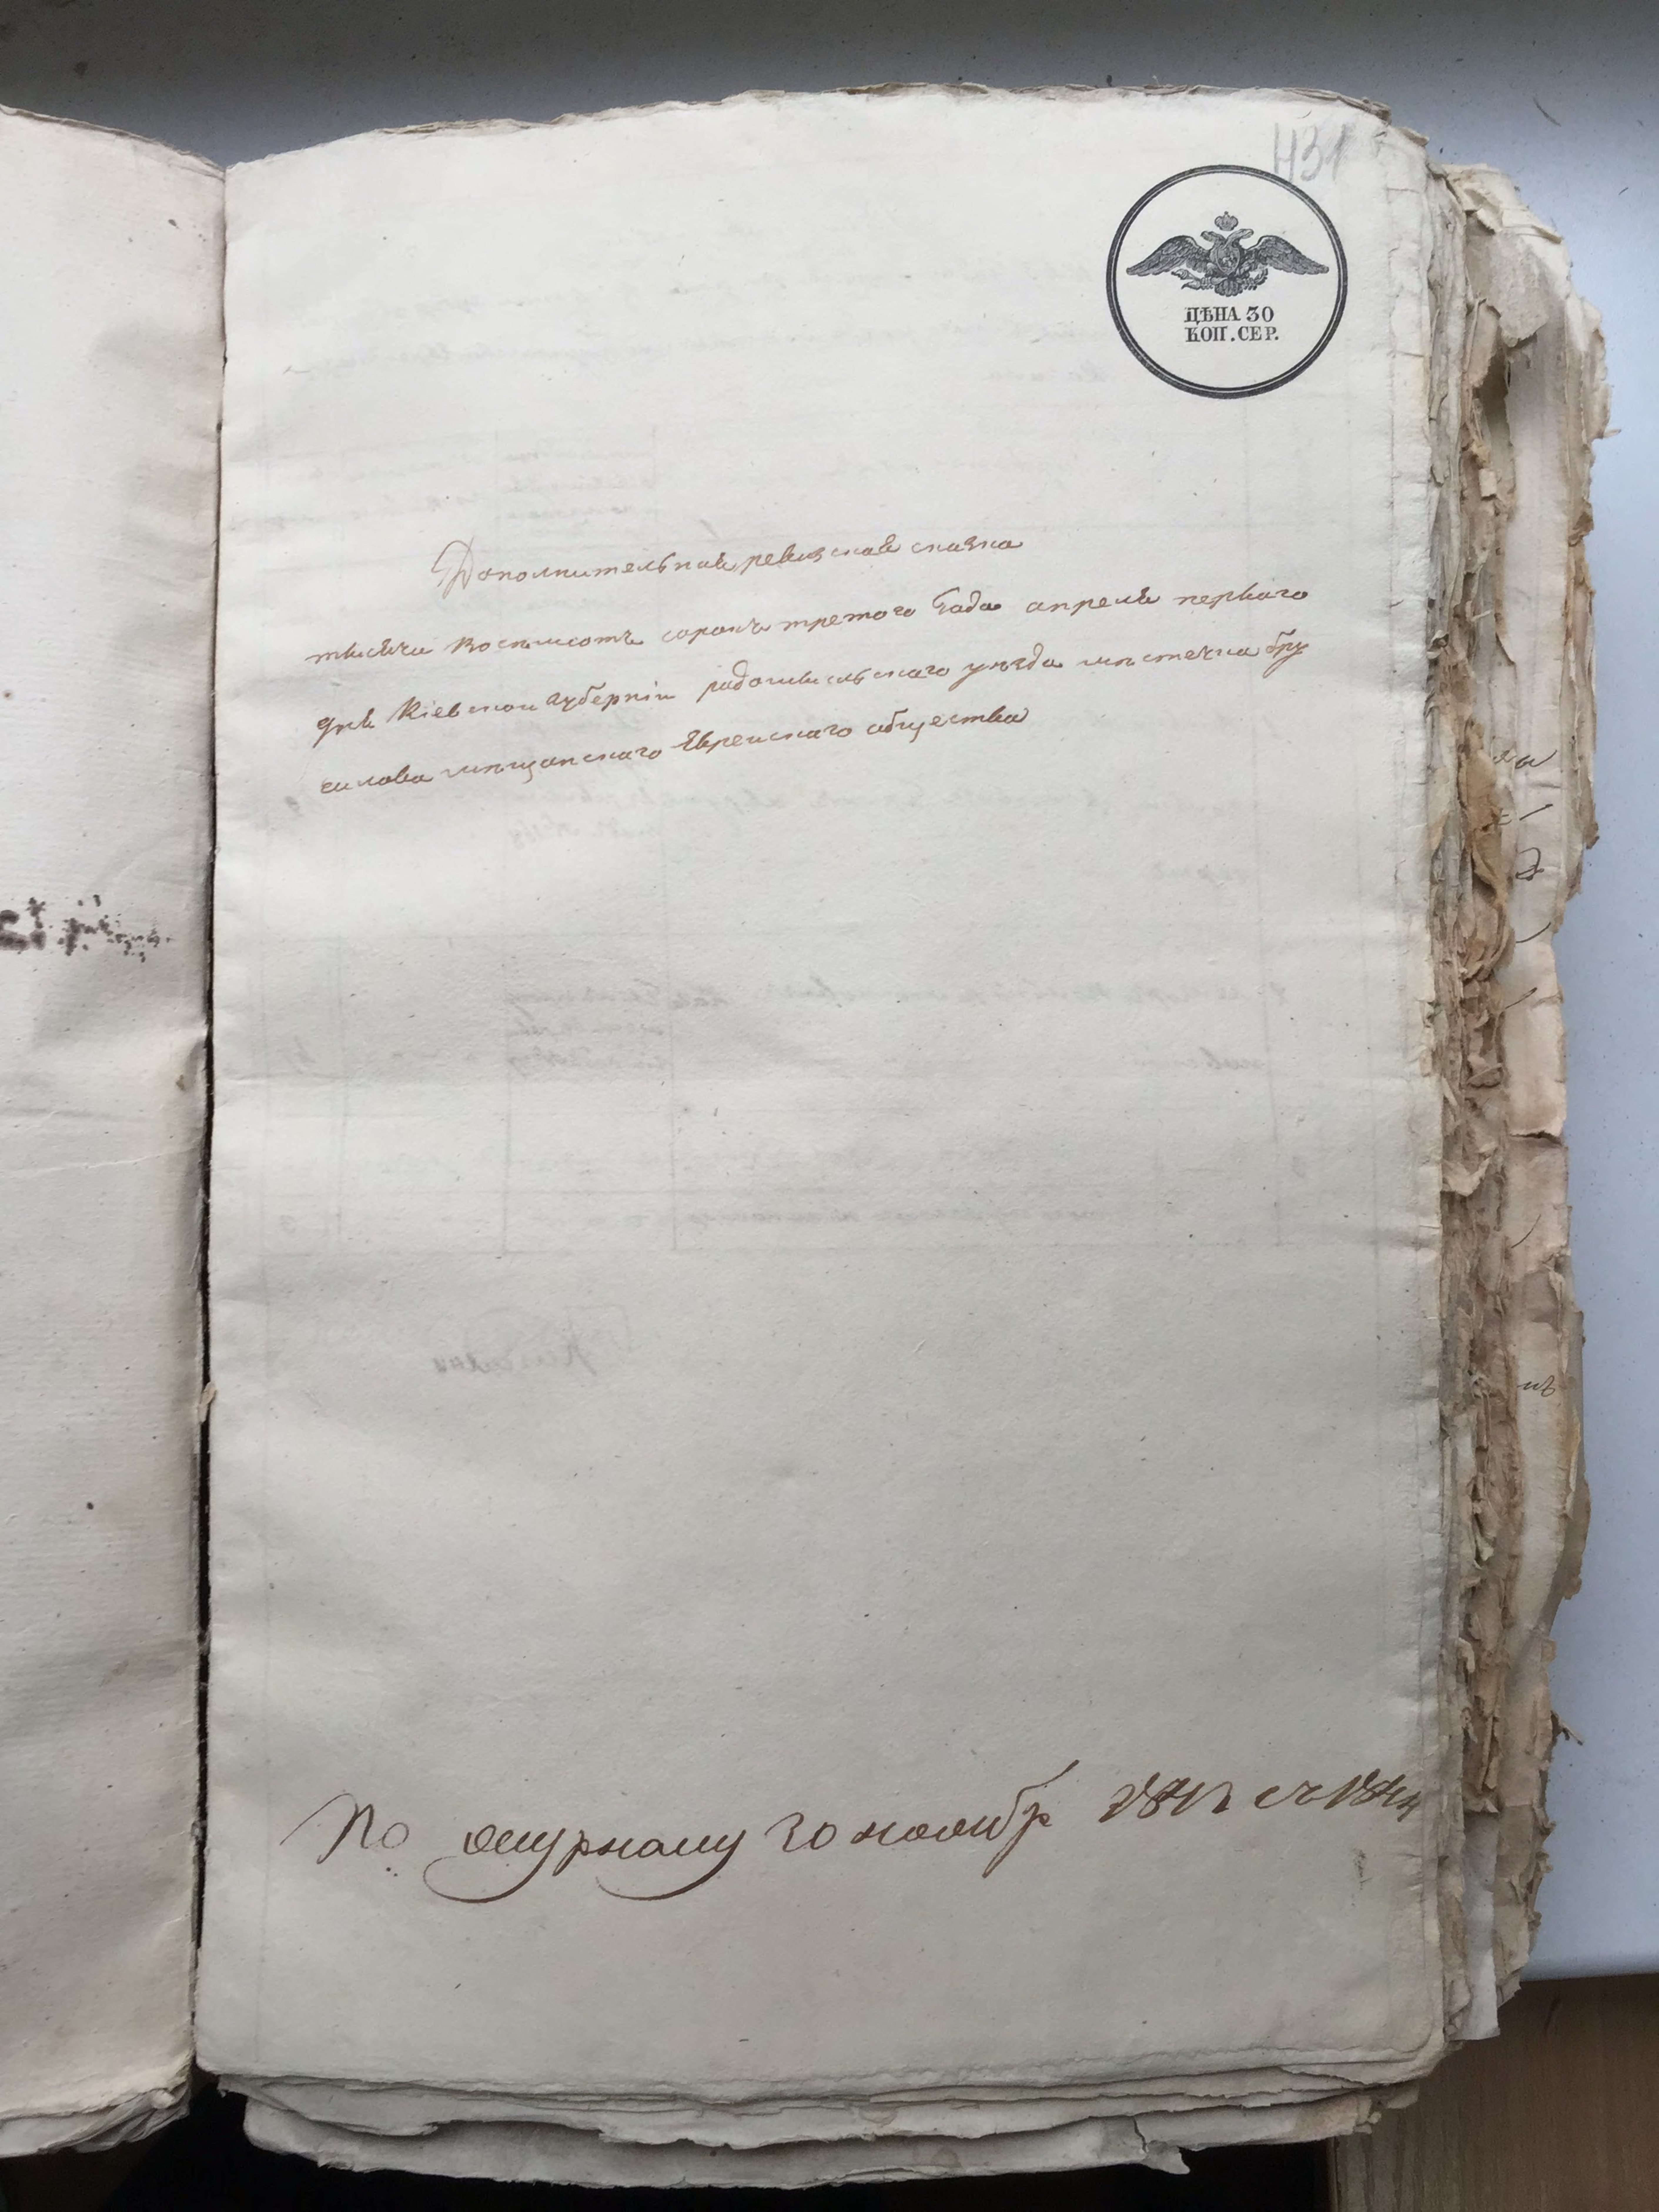 431
ЦѢНА 30
КОП. СЕР.
Дополнительная ревизская сказка
тысяча восемсотъ сорокъ третого года апреля перваго
дня Кіевской губерніи радомысльского уѣзда мѣстечка Бру
силова мѣщанского Еврейского общества
По 20 ноябр